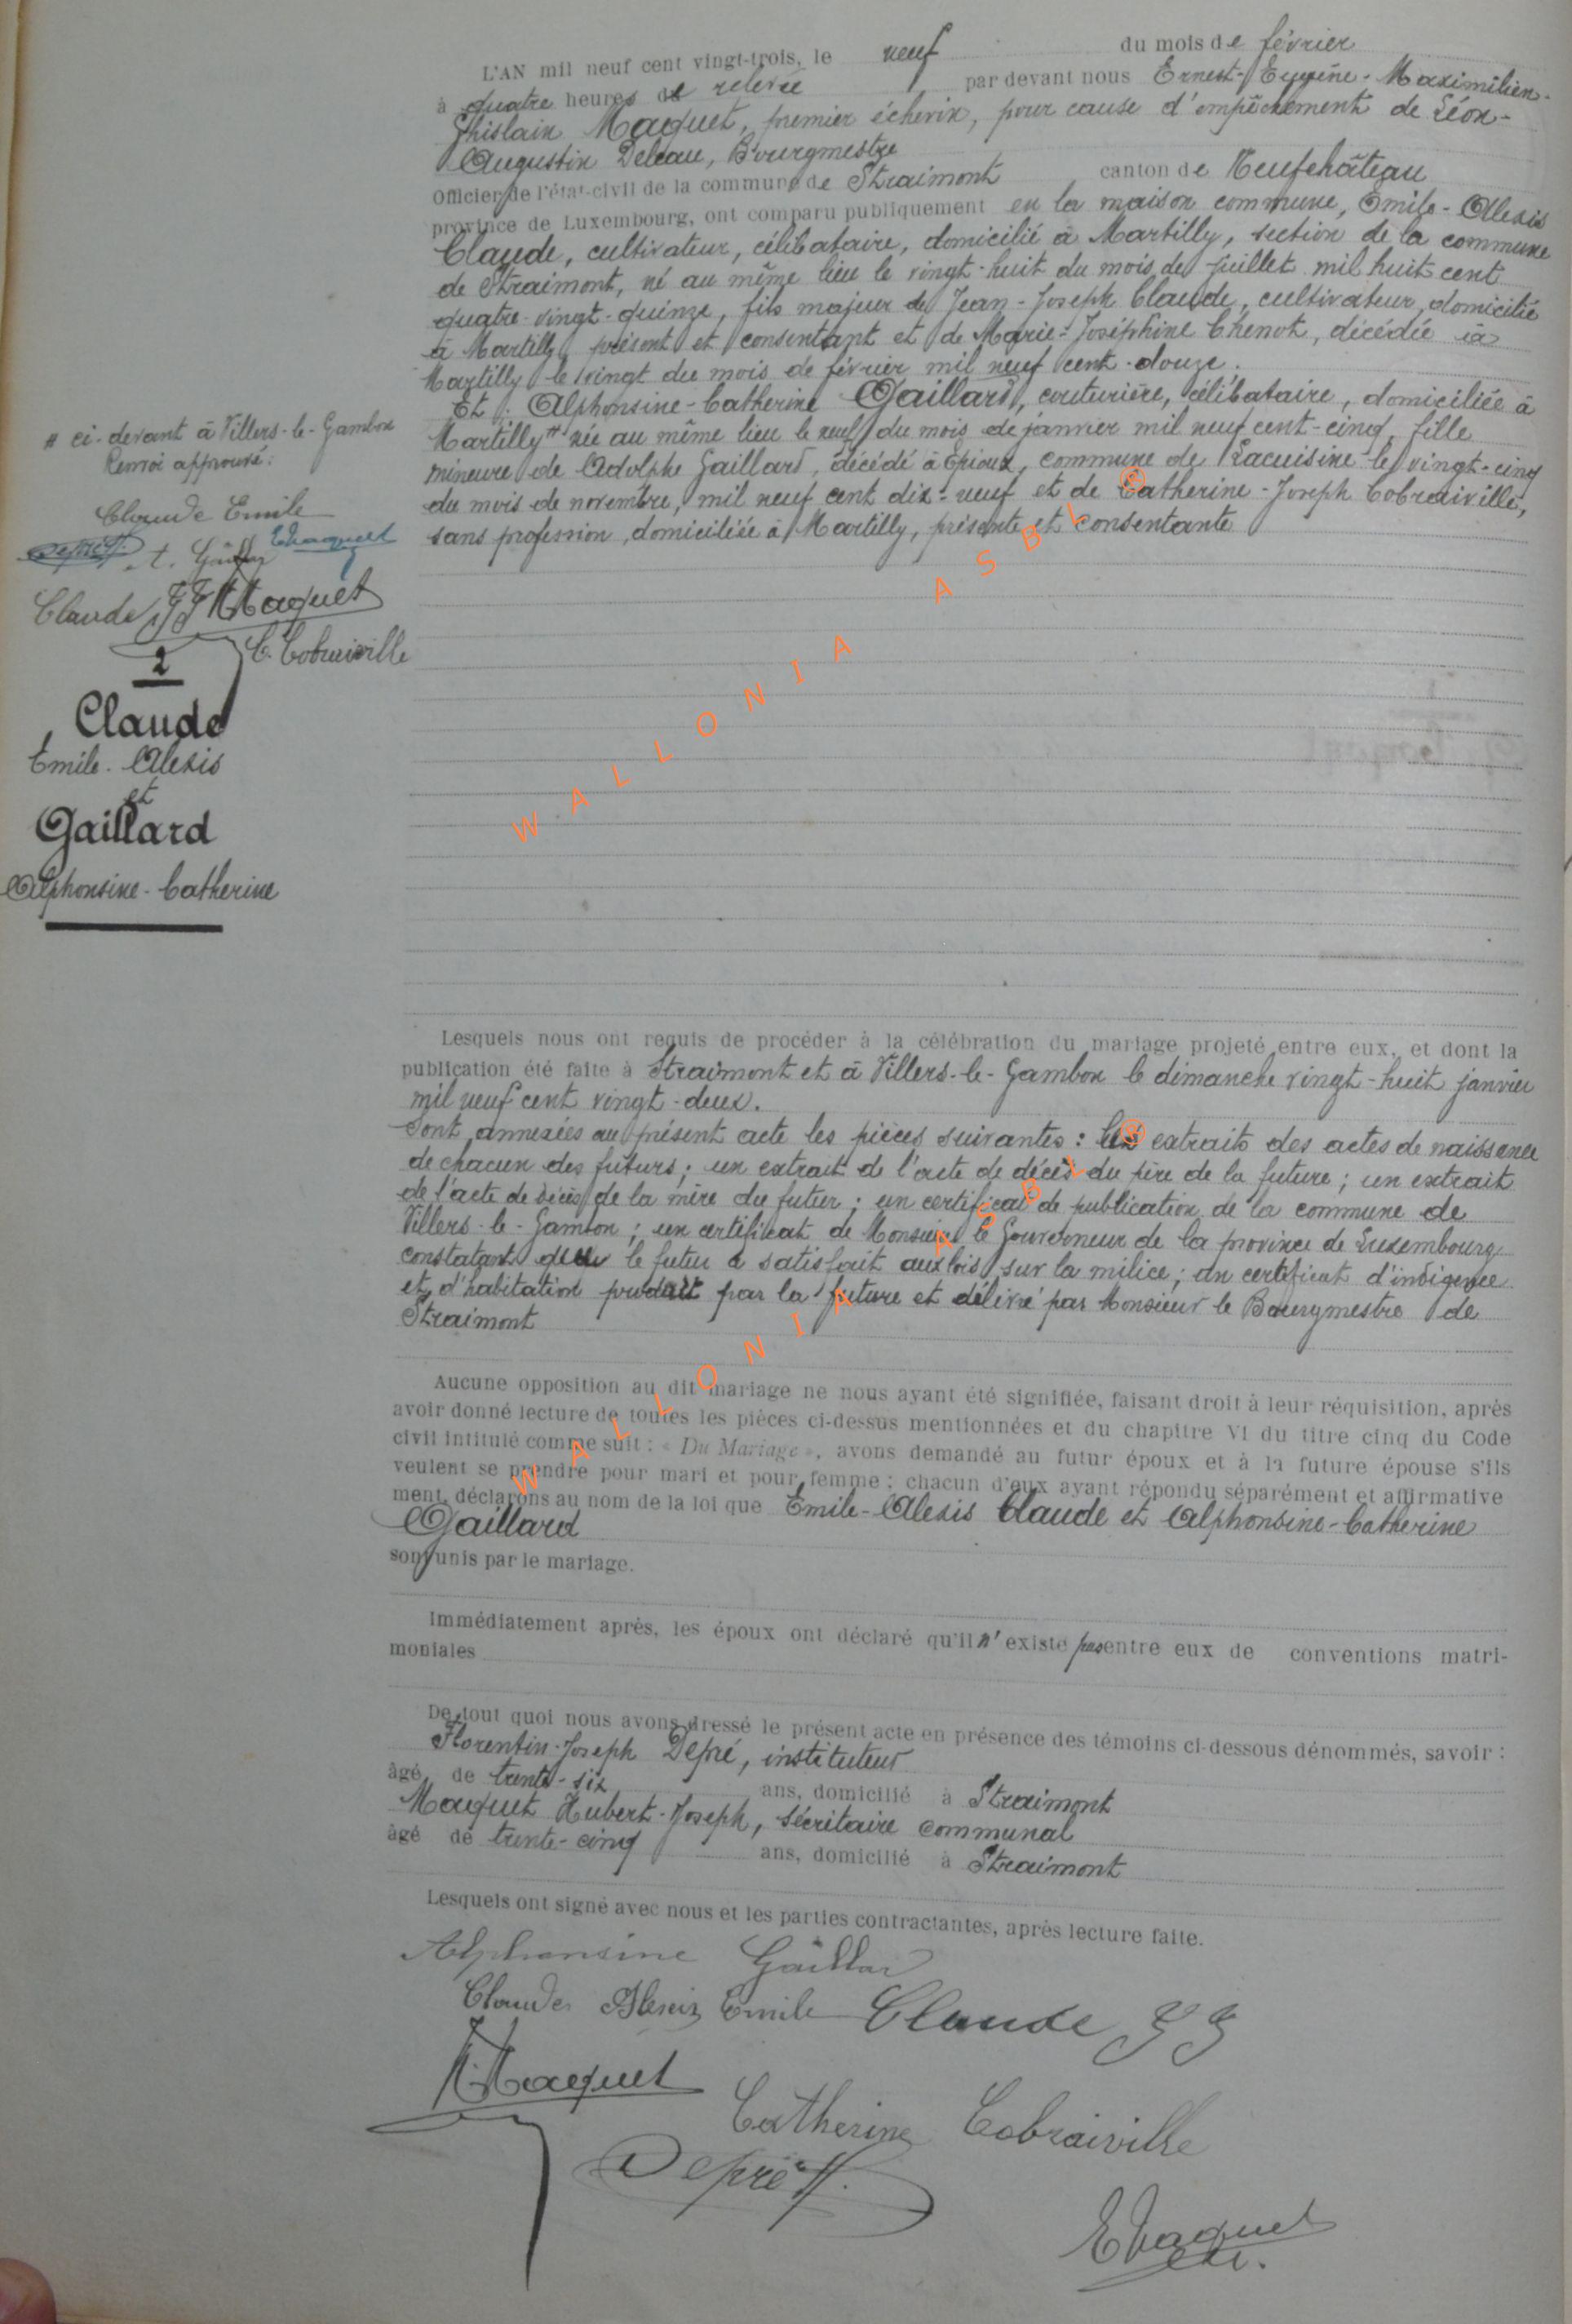 L'AN mil neuf cent vingt-trois, le neuf du mois de février
à quatre heures de relevée par devant nous Ernest-Eugène-Maximilien-
Ghislain Maquet, premier échevin, pour cause d'empêchement de Léon-
Augustin Deleau, Bourgmestre
Officier de l'état-civil de la commune de Straimont canton de Neufchâteau
province de Luxembourg, ont comparu publiquement en la maison commune, Emile-Alexis
Claude, cultivateur, célibataire, domicilié à Martilly, section de la commune
de Straimont, né au même lieu le vingt-huit du mois de juillet mil huit cent
quatre-vingt-quinze, fils majeur de Jean-Joseph Claude, cultivateur, domicilié
à Martilly présent et consentant et de Marie-Joséphine Chenot, décédée à
Martilly le vingt du mois de février mil neuf cent-douze.
Et : Alphonsine-Catherine Gaillard, couturière, célibataire, domiciliée à
Martilly # née au même lieu le neuf du mois de janvier mil neuf cent-cinq, fille
mineure de Adolphe Gaillard, décédé à Epioux, commune de Lacuisine le vingt-cinq
du mois de novembre, mil neuf cent dix-neuf et de Catherine-Joseph Cobraiville,
sans profession, domiciliée à Martilly, présente et consentante
# ci-devant à Villers-le-Gambon
Renvoi approuvé:
Claude Emile
Depré ff. A. Gaillar EMaquet
Claude JJ HMaquet
C. Cobraiville
2
Claude
Emile-Alexis
et
Gaillard
Alphonsine-Catherine
WALLONIA ASBL ®
Lesquels nous ont requis de procéder à la célébration du mariage projeté entre eux, et dont la
publication été faite à Straimont et à Villers-le-Gambon le dimanche vingt-huit janvier
mil neuf cent vingt-deux.
Sont annexées au présent acte les pièces suivantes : Les extraits des actes de naissance
de chacun des futurs ; un extrait de l'acte de décès du père de la future ; un extrait
de l'acte de décès de la mère du futur ; un certificat de publication de la commune de
Villers-le-Gambon ; un certificat de Monsieur le Gouverneur de la province de Luxembourg
constatant que le futur a satisfait aux lois sur la milice ; un certificat d'indigence
et d'habitation produit par la future et délivré par Monsieur le Bourgmestre de
Straimont
WALLONIA ASBL ®
Aucune opposition au dit mariage ne nous ayant été signifiée, faisant droit à leur réquisition, après
avoir donné lecture de toutes les pièces ci-dessus mentionnées et du chapitre VI du titre cinq du Code
civil intitulé comme suit : « Du Mariage », avons demandé au futur époux et à la future épouse s'ils
veulent se prendre pour mari et pour femme ; chacun d'eux ayant répondu séparément et affirmative
ment, déclarons au nom de la loi que Emile-Alexis Claude et Alphonsine-Catherine
Gaillard
sont unis par le mariage.
Immédiatement après, les époux ont déclaré qu'il n'existe pas entre eux de conventions matri-
moniales
De tout quoi nous avons dressé le présent acte en présence des témoins ci-dessous dénommés, savoir :
Florentin-Joseph Depré, instituteur
âgé de trente-six ans, domicilié à Straimont
Maquet Hubert-Joseph, secrétaire communal
âgé de trente-cinq ans, domicilié à Straimont
Lesquels ont signé avec nous et les parties contractantes, après lecture faite.
Alphonsine Gaillar
Claude Alexis Emile Claude JJ
HMaquet
Catherine Cobraiville
Depré ff.
EMaquet